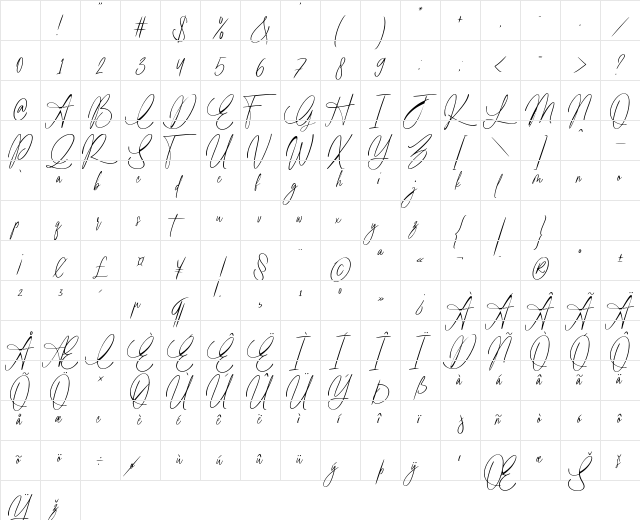 ! " # $ % & ' ( ) * + , - . /
0 1 2 3 4 5 6 7 8 9 : ; < = > ?
@ A B C D E F G H I J K L M N O
P Q R S T U V W X Y Z [ \ ] ^ _
` a b c d e f g h i j k l m n o
p q r s t u v w x y z { | }
¡ ¢ £ ¤ ¥ ¦ § ¨ © ª « ¬ ® ° ±
2 3 ´ µ ¶ ¸ 1 º » ¿ À Á Â Ã Ä
Å Æ Ç È É Ê Ë Ì Í Î Ï Ð Ñ Ò Ó Ô
Õ Ö × Ø Ù Ú Û Ü Ý Þ ß à á â ã ä
å æ ç è é ê ë ì í î ï ð ñ ò ó ô
õ ö ÷ ø ù ú û ü ý þ ÿ ı Œ œ Š š
Ÿ ž